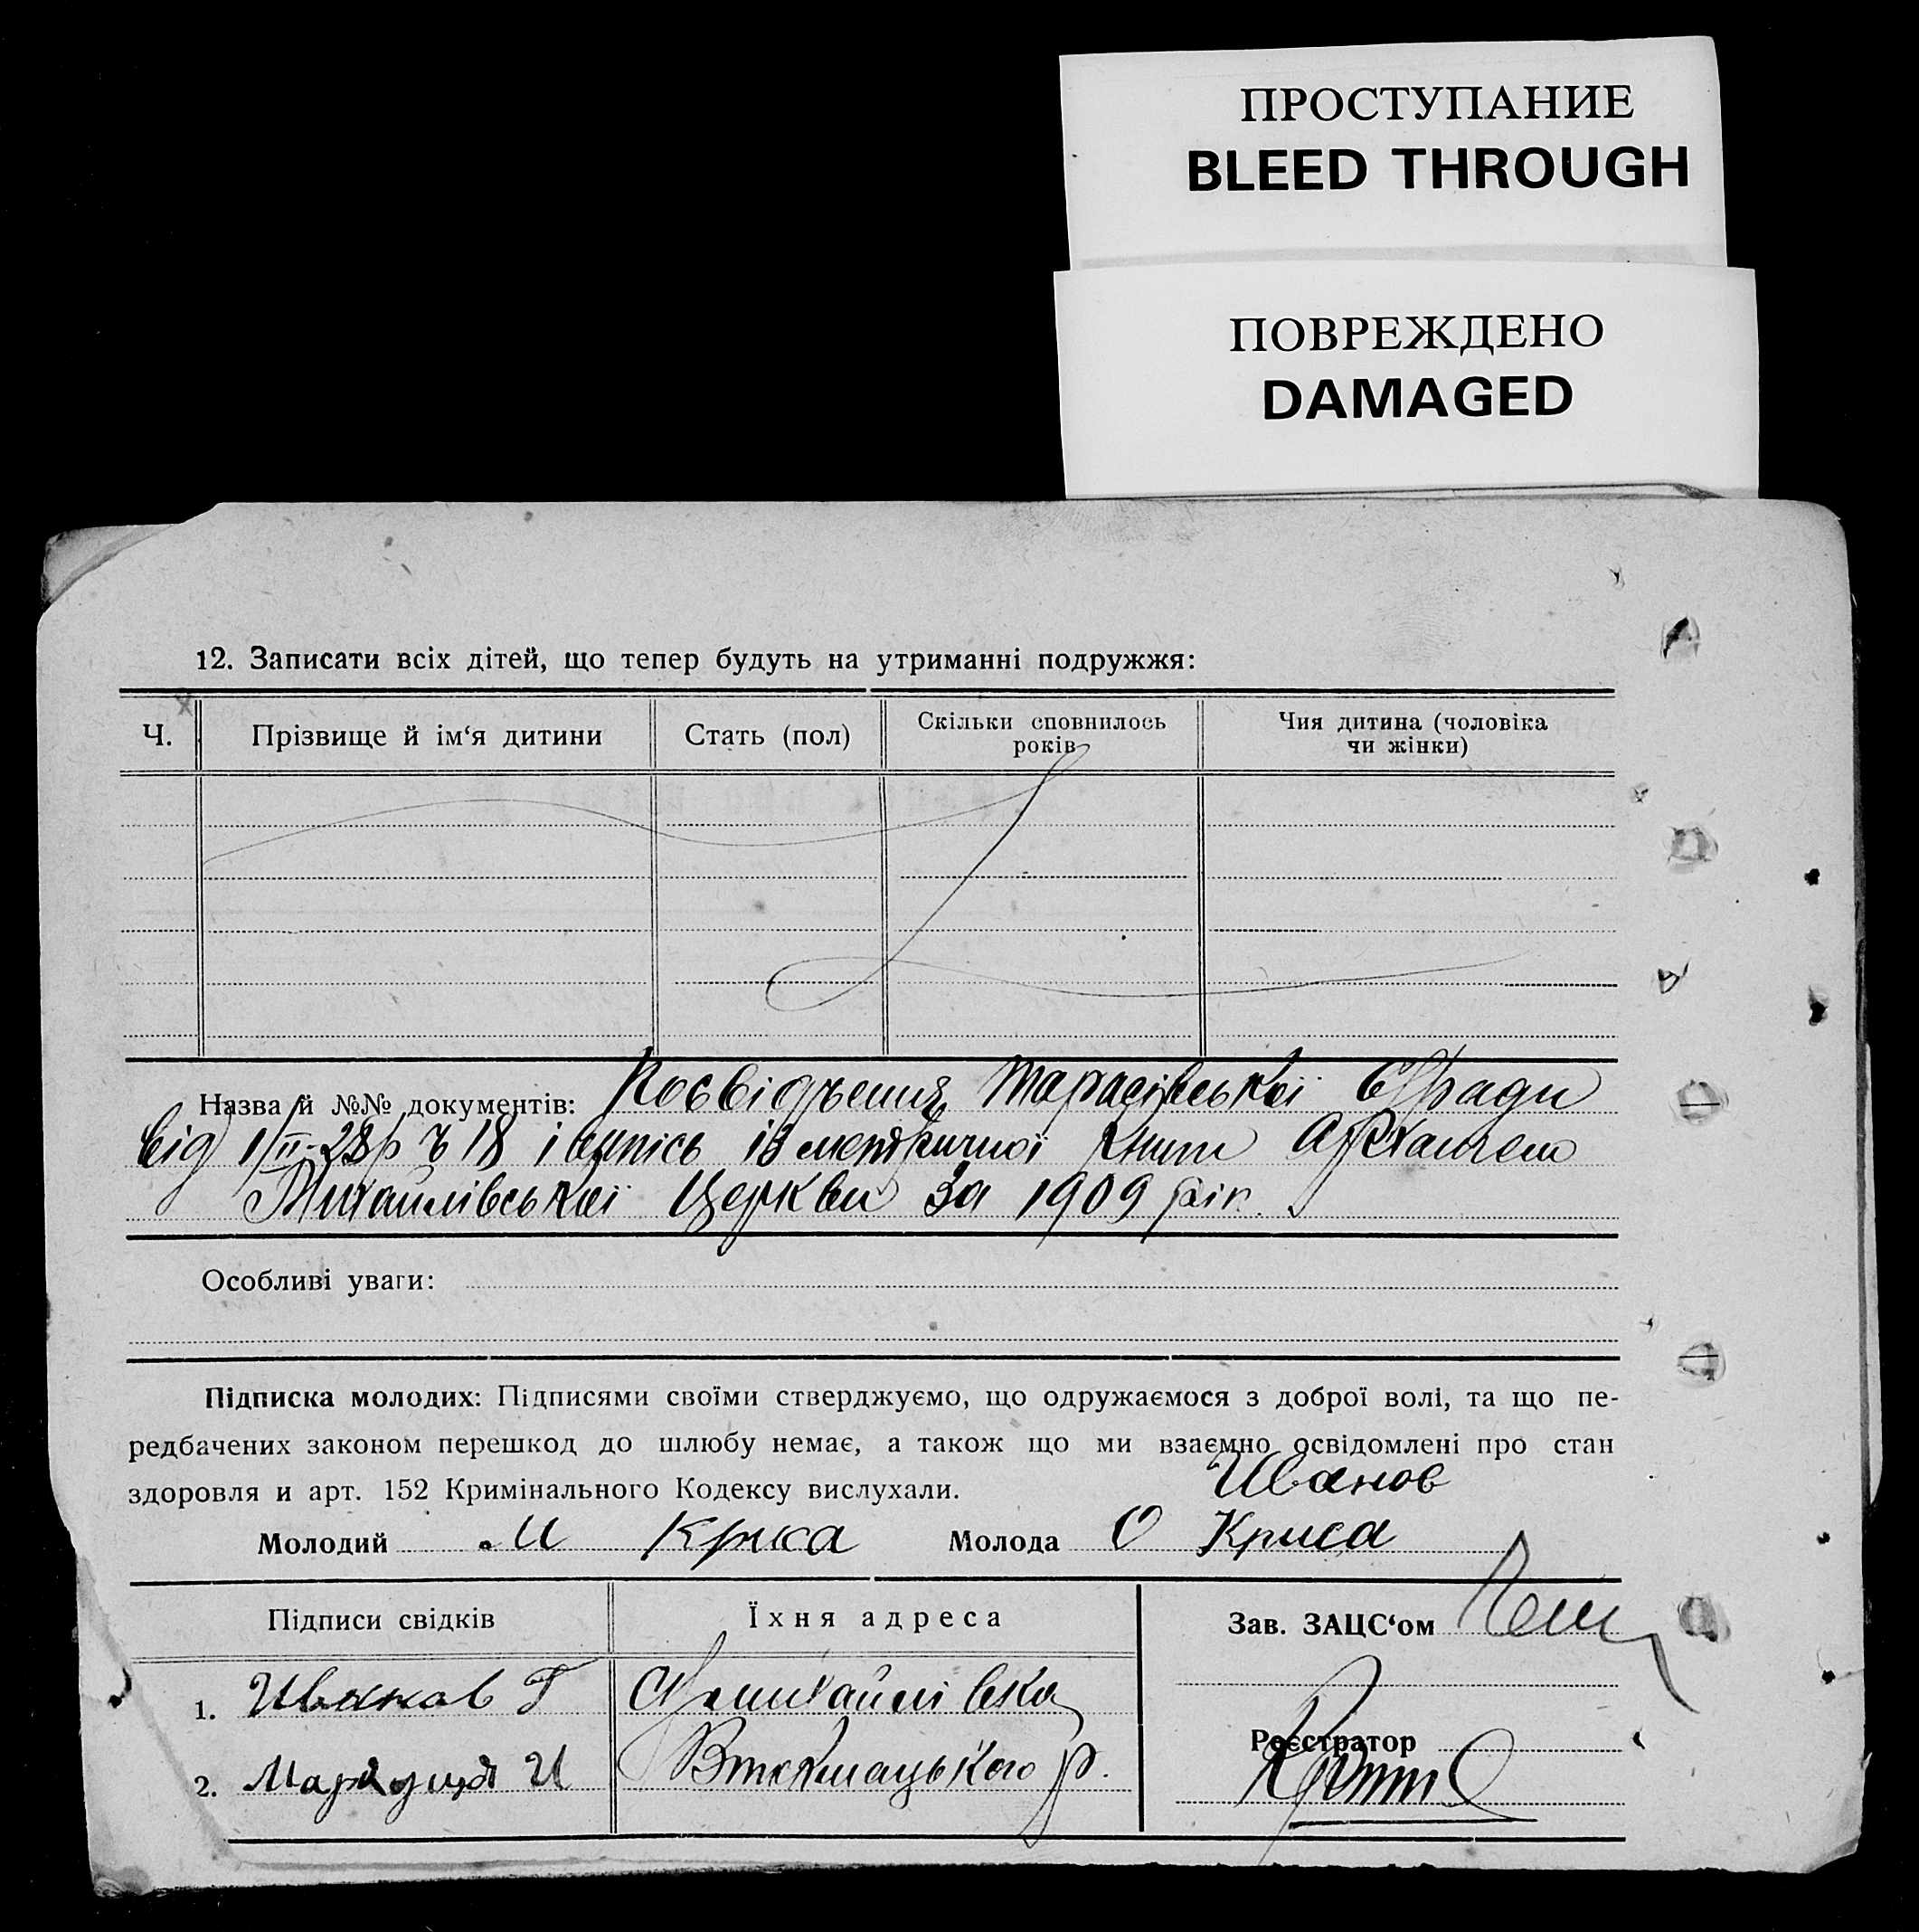 ПРОСТУПАНИЕ
BLEED THROUGH
ПОВРЕЖДЕНО
DAMAGED
12. Записати всіх дітей, що тепер будуть на утриманні подружжя:
Ч. Прізвище й ім‘я дитини Стать (пол) Скільки сповнилось років Чия дитина (чоловіка чи жінки)
Назва й №№ документів: Посвідчення Тарасівської С/ради
від 1/ІІ-28р Ч 18 і випісь із метричної книги Архангело
Михайлівської Церкви за 1909 рік.
Особливі уваги:
Підписка молодих: Підписями своїми стверджуємо, що одружаємося з доброї волі, та що пе-
редбачених законом перешкод до шлюбу немає, а також що ми взаємно освідомлені про стан
здоровля и арт. 152 Кримінального Кодексу вислухали.
Иванов
Молодий И Криса Молода О Криса
Підписи свідків Їхня адреса Зав. ЗАЦС‘ом
1. Иванов Г
Реєстратор
2. И р.